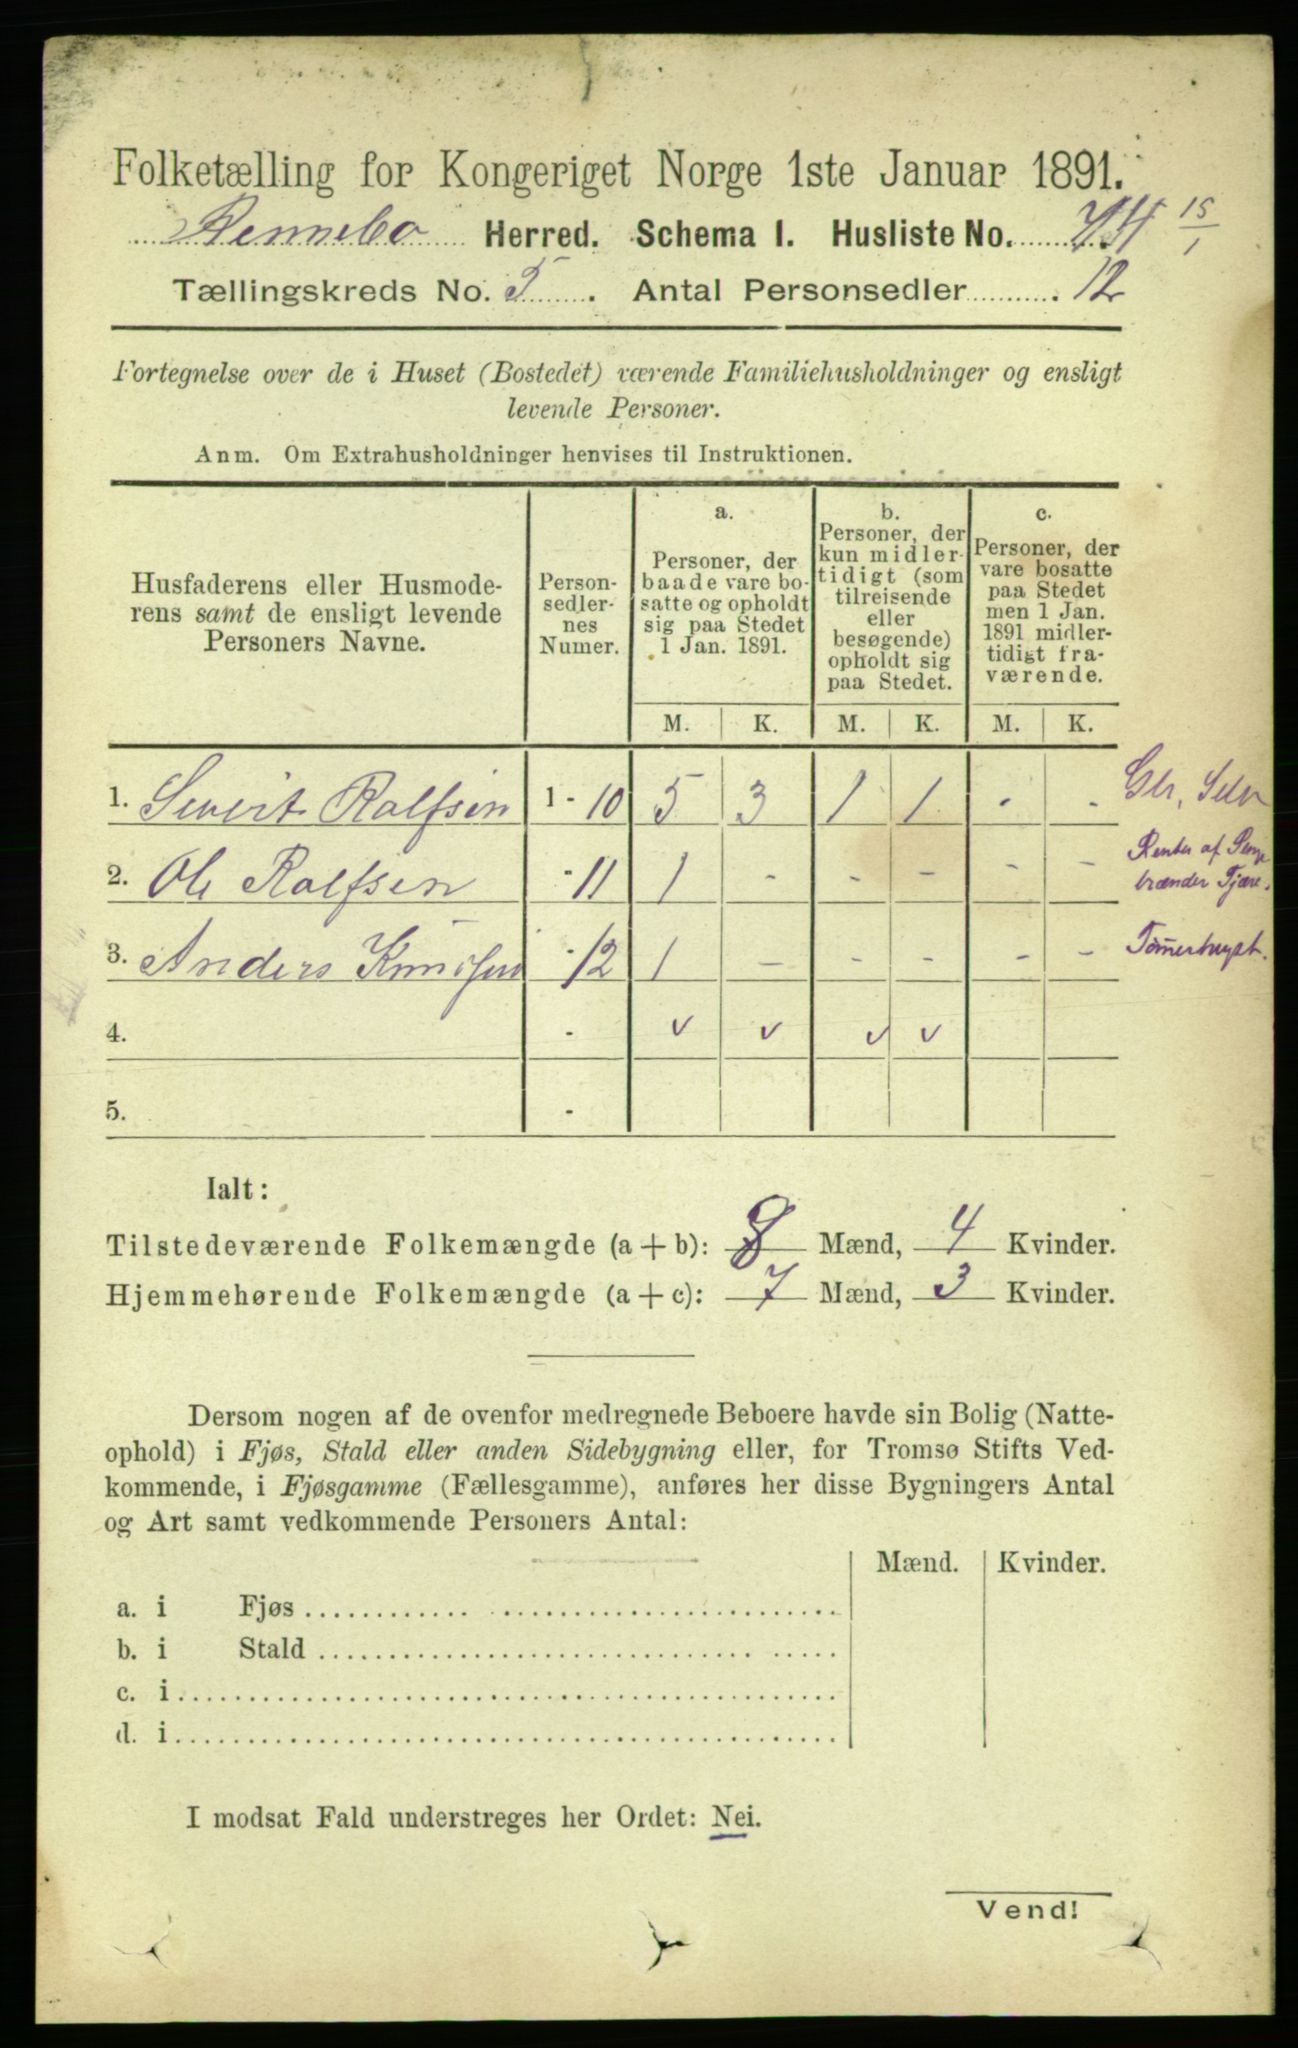 Folketælling for Kongeriget Norge 1ste Januar 1891.
Rennebo Herred. Schema I. Husliste No. 15/1
Tællingskreds No. 5. Antal Personsedler 12
Fortegnelse over de i Huset (Bostedet) værende Familiehusholdninger og ensligt
levende Personer.
Anm. Om Extrahusholdninger henvises til Instruktionen.
Husfaderens eller Husmode-
rens samt de ensligt levende
Personers Navne.
Person-
sedler-
nes
Numer.
a.
Personer, der
baade vare bo-
satte og opholdt
sig paa Stedet
1 Jan. 1891.
b.
Personer, der
kun midler-
tidigt (som
tilreisende
eller
besøgende)
opholdt sig
paa Stedet.
c.
Personer, der
vare bosatte
paa Stedet
men 1 Jan.
1891 midler-
tidigt fra-
værende.
M. K. M. K. M. K.
1. Sivert Rolfsen 1 - 10 5 3 1 1 - - Selv
2. Ole Rolfsen - 11 1 - - - - - Renter af
brænder Tjære.
3. Anders - 12 1 - - - - -
4. - v v v v
5. -
Ialt:
Tilstedeværende Folkemængde (a + b): 8 Mænd, 4 Kvinder.
Hjemmehørende Folkemængde (a + c): 7 Mænd, 3 Kvinder.
Dersom nogen af de ovenfor medregnede Beboere havde sin Bolig (Natte-
ophold) i Fjøs, Stald eller anden Sidebygning eller, for Tromsø Stifts Ved-
kommende, i Fjøsgamme (Fællesgamme), anføres her disse Bygningers Antal
og Art samt vedkommende Personers Antal:
Mænd. Kvinder.
a. i Fjøs
b. i Stald
c. i
d. i
I modsat Fald understreges her Ordet: Nei.
Vend!